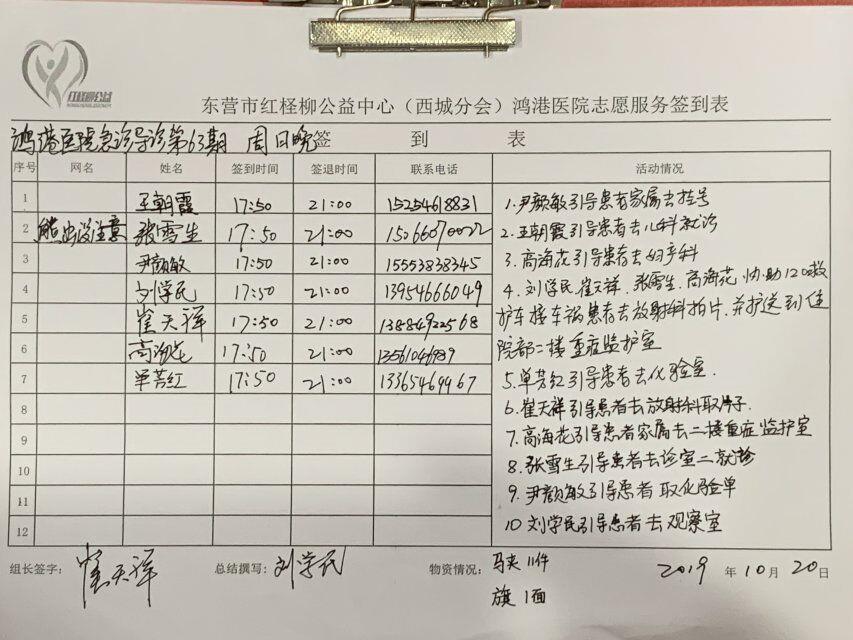 红柽柳公益
东营市红柽柳公益中心（西城分会）鸿港医院志愿服务签到表
鸿港医院急诊导诊第63期 周日晚 签 到 表
序号 网名 姓名 签到时间 签退时间 联系电话 活动情况
1 王朝霞 17:50 21:00 15254618831
2 熊出没注意 张雪生 17:50 21:00 15066070022
3 尹颜敏 17:50 21:00 15553838345
4 刘学民 17:50 21:00 13954666049
5 崔天祥 17:50 21:00 13884922568
6 高海花 17:50 21:00
7 单芳红 17:50 21:00 13365469967
8
9
10
11
12
1.尹颜敏引导患者家属去挂号
2.王朝霞引导患者去儿科就诊
3.高海花引导患者去妇产科
4.刘学民、崔天祥、张雪生、高海花、协助120救
护车接车祸患者去放射科拍片,并护送到住
院部二楼重症监护室
5.单芳红引导患者去化验室.
6.崔天祥引导患者去放射科取片子.
7.高海花引导患者家属去二楼重症监护室
8.张雪生引导患者去诊室二就诊
9.尹颜敏引导患者取化验单
10刘学民引导患者去观察室
组长签字： 崔天祥 总结撰写： 刘学民 物资情况： 马夹11件 2019 年 10 月 20 日
旗1面